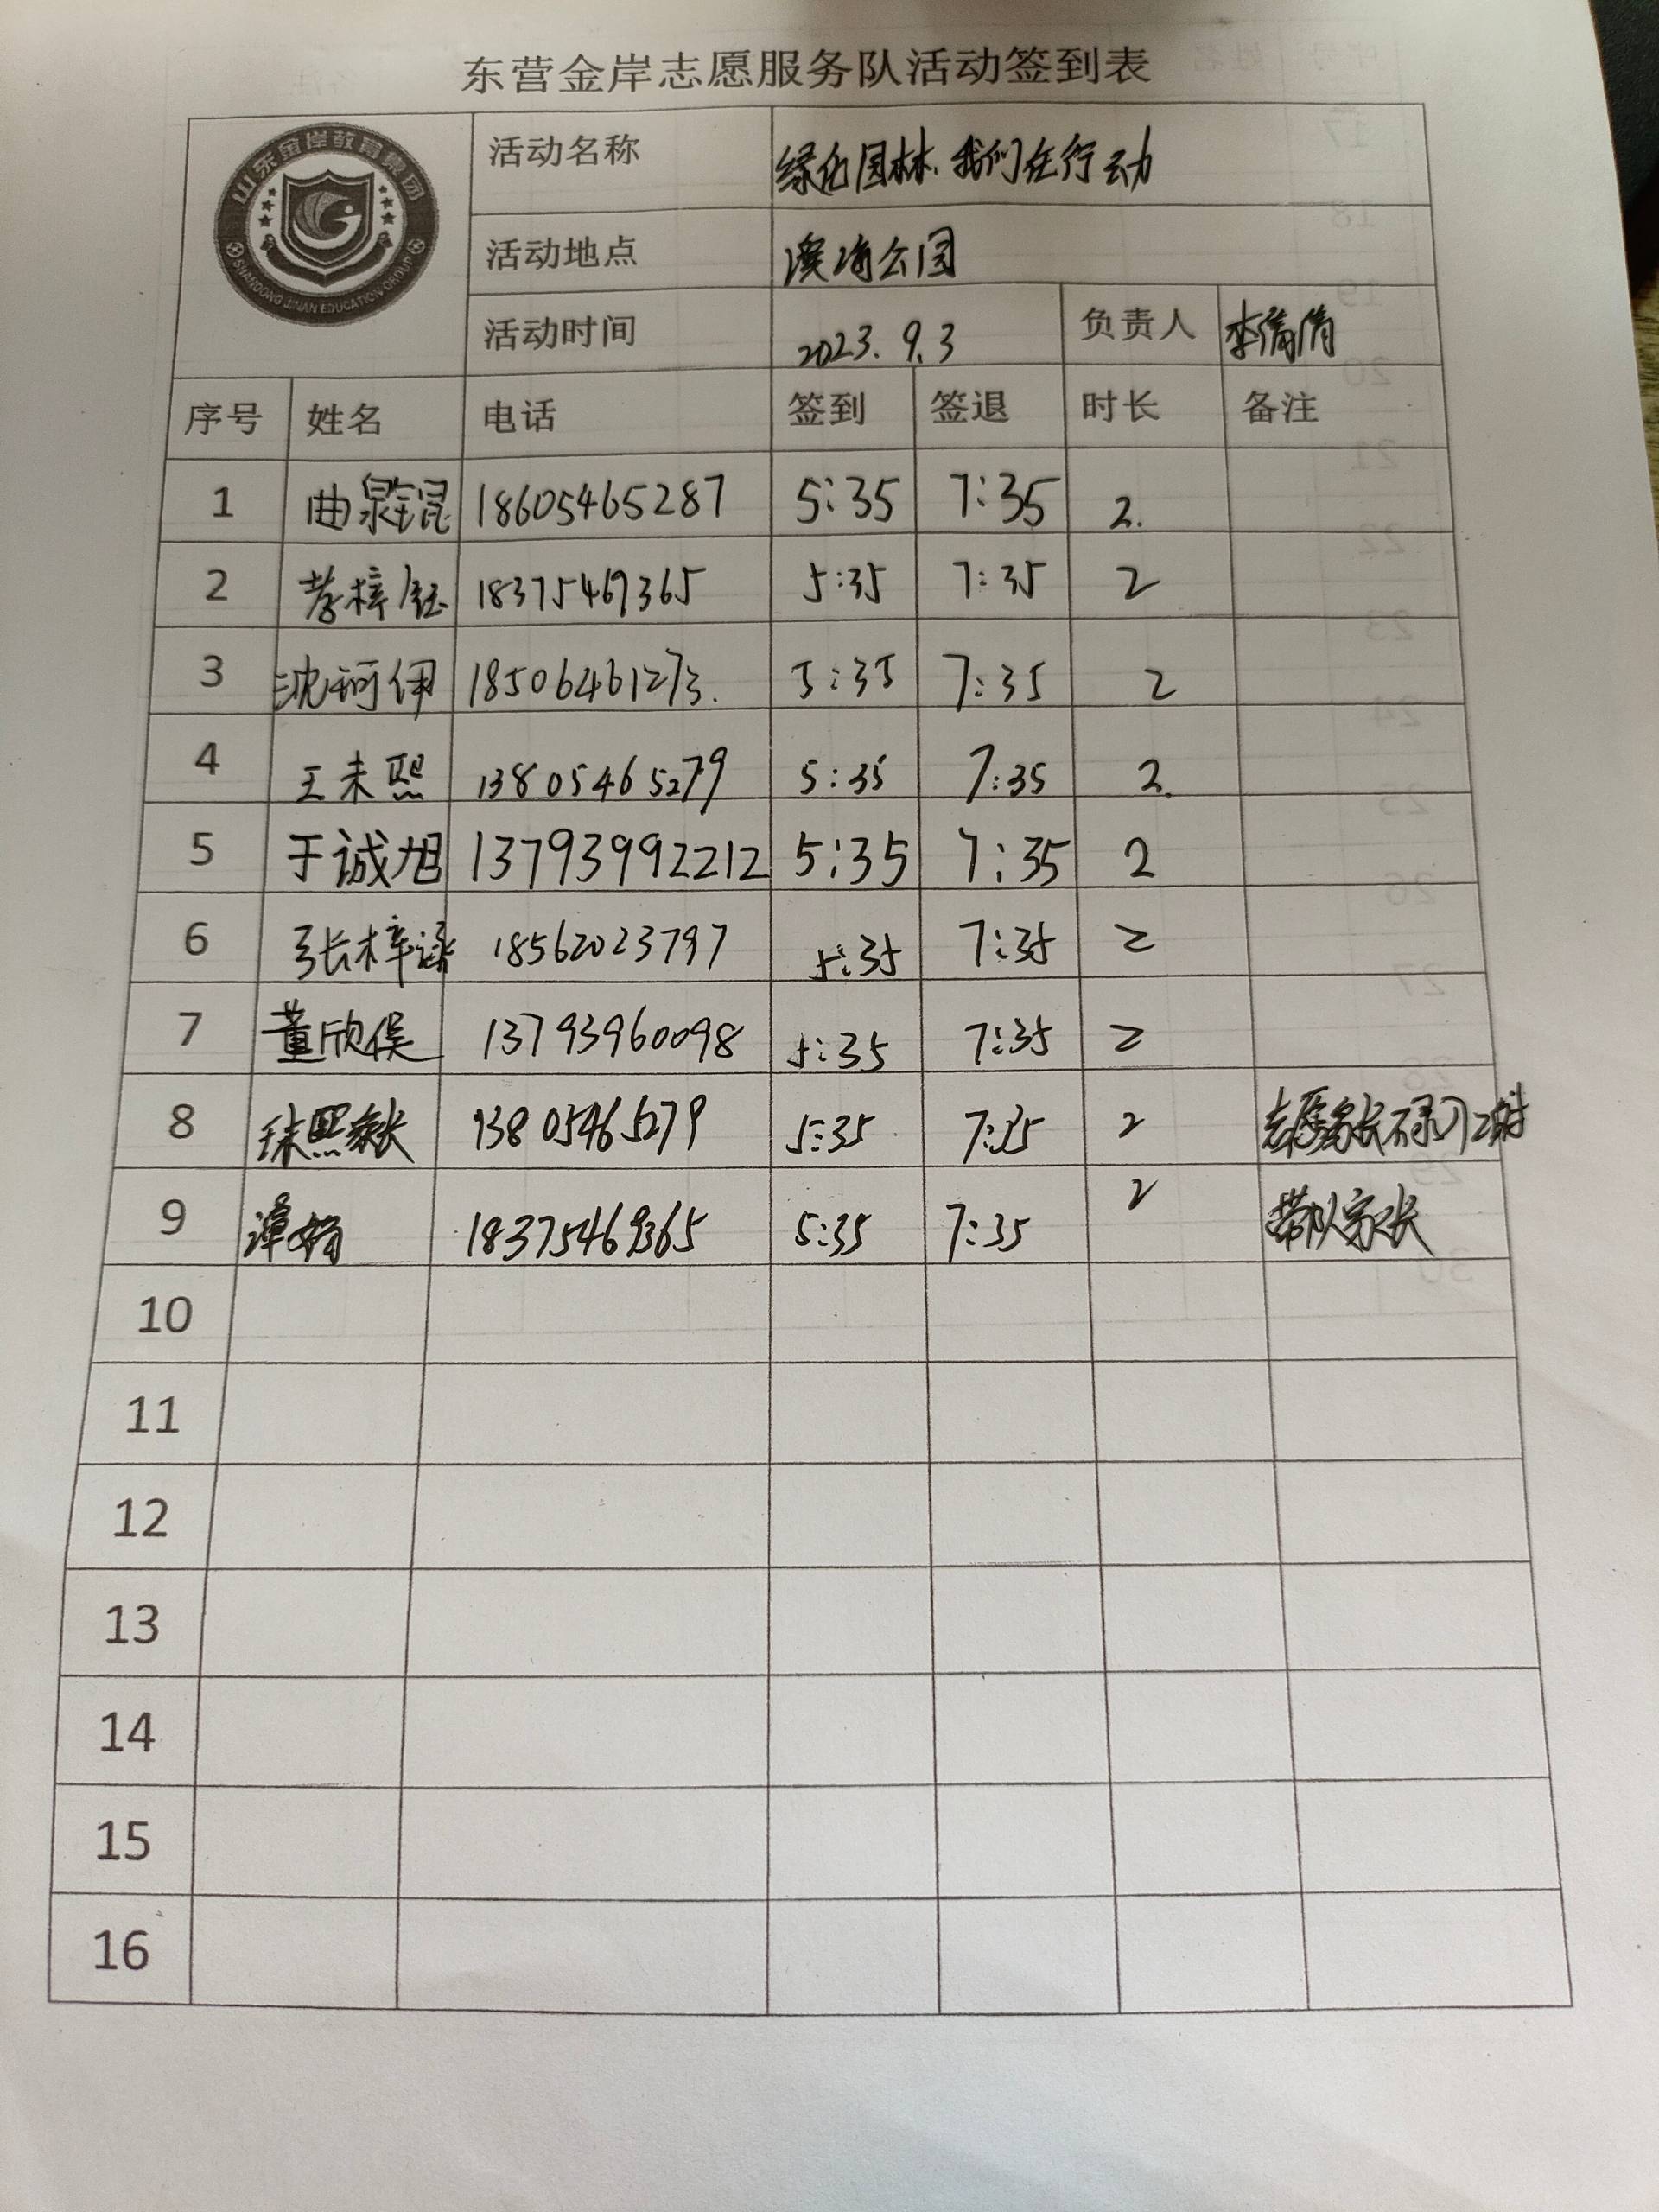 东营金岸志愿服务队活动签到表
山东金岸教育集团
SHANDONG JINAN EDUCATION GROUP
活动名称 绿化园林、我们在行动
活动地点 滨海公园
活动时间 2023.9.3 负责人 李倩倩
序号 姓名 电话 签到 签退 时长 备注
1 曲 18605465287 5:35 7:35 2.
2 梓钰 18375469365 5:35 7:35 2
3 沈珂伊 18506461273. 5:35 7:35 2
4 王未熙 13805465279 5:35 7:35 2.
5 于诚旭 13793992212 5:35 7:35 2
6 张梓涵 18562023797 5:35 7:35 2
7 董欣俣 13793960098 5:35 7:35 2
8 王未熙家长 13805465279 5:35 7:35 2 志愿家长
9 谭娟 18375469365 5:35 7:35 2 带队家长
10
11
12
13
14
15
16